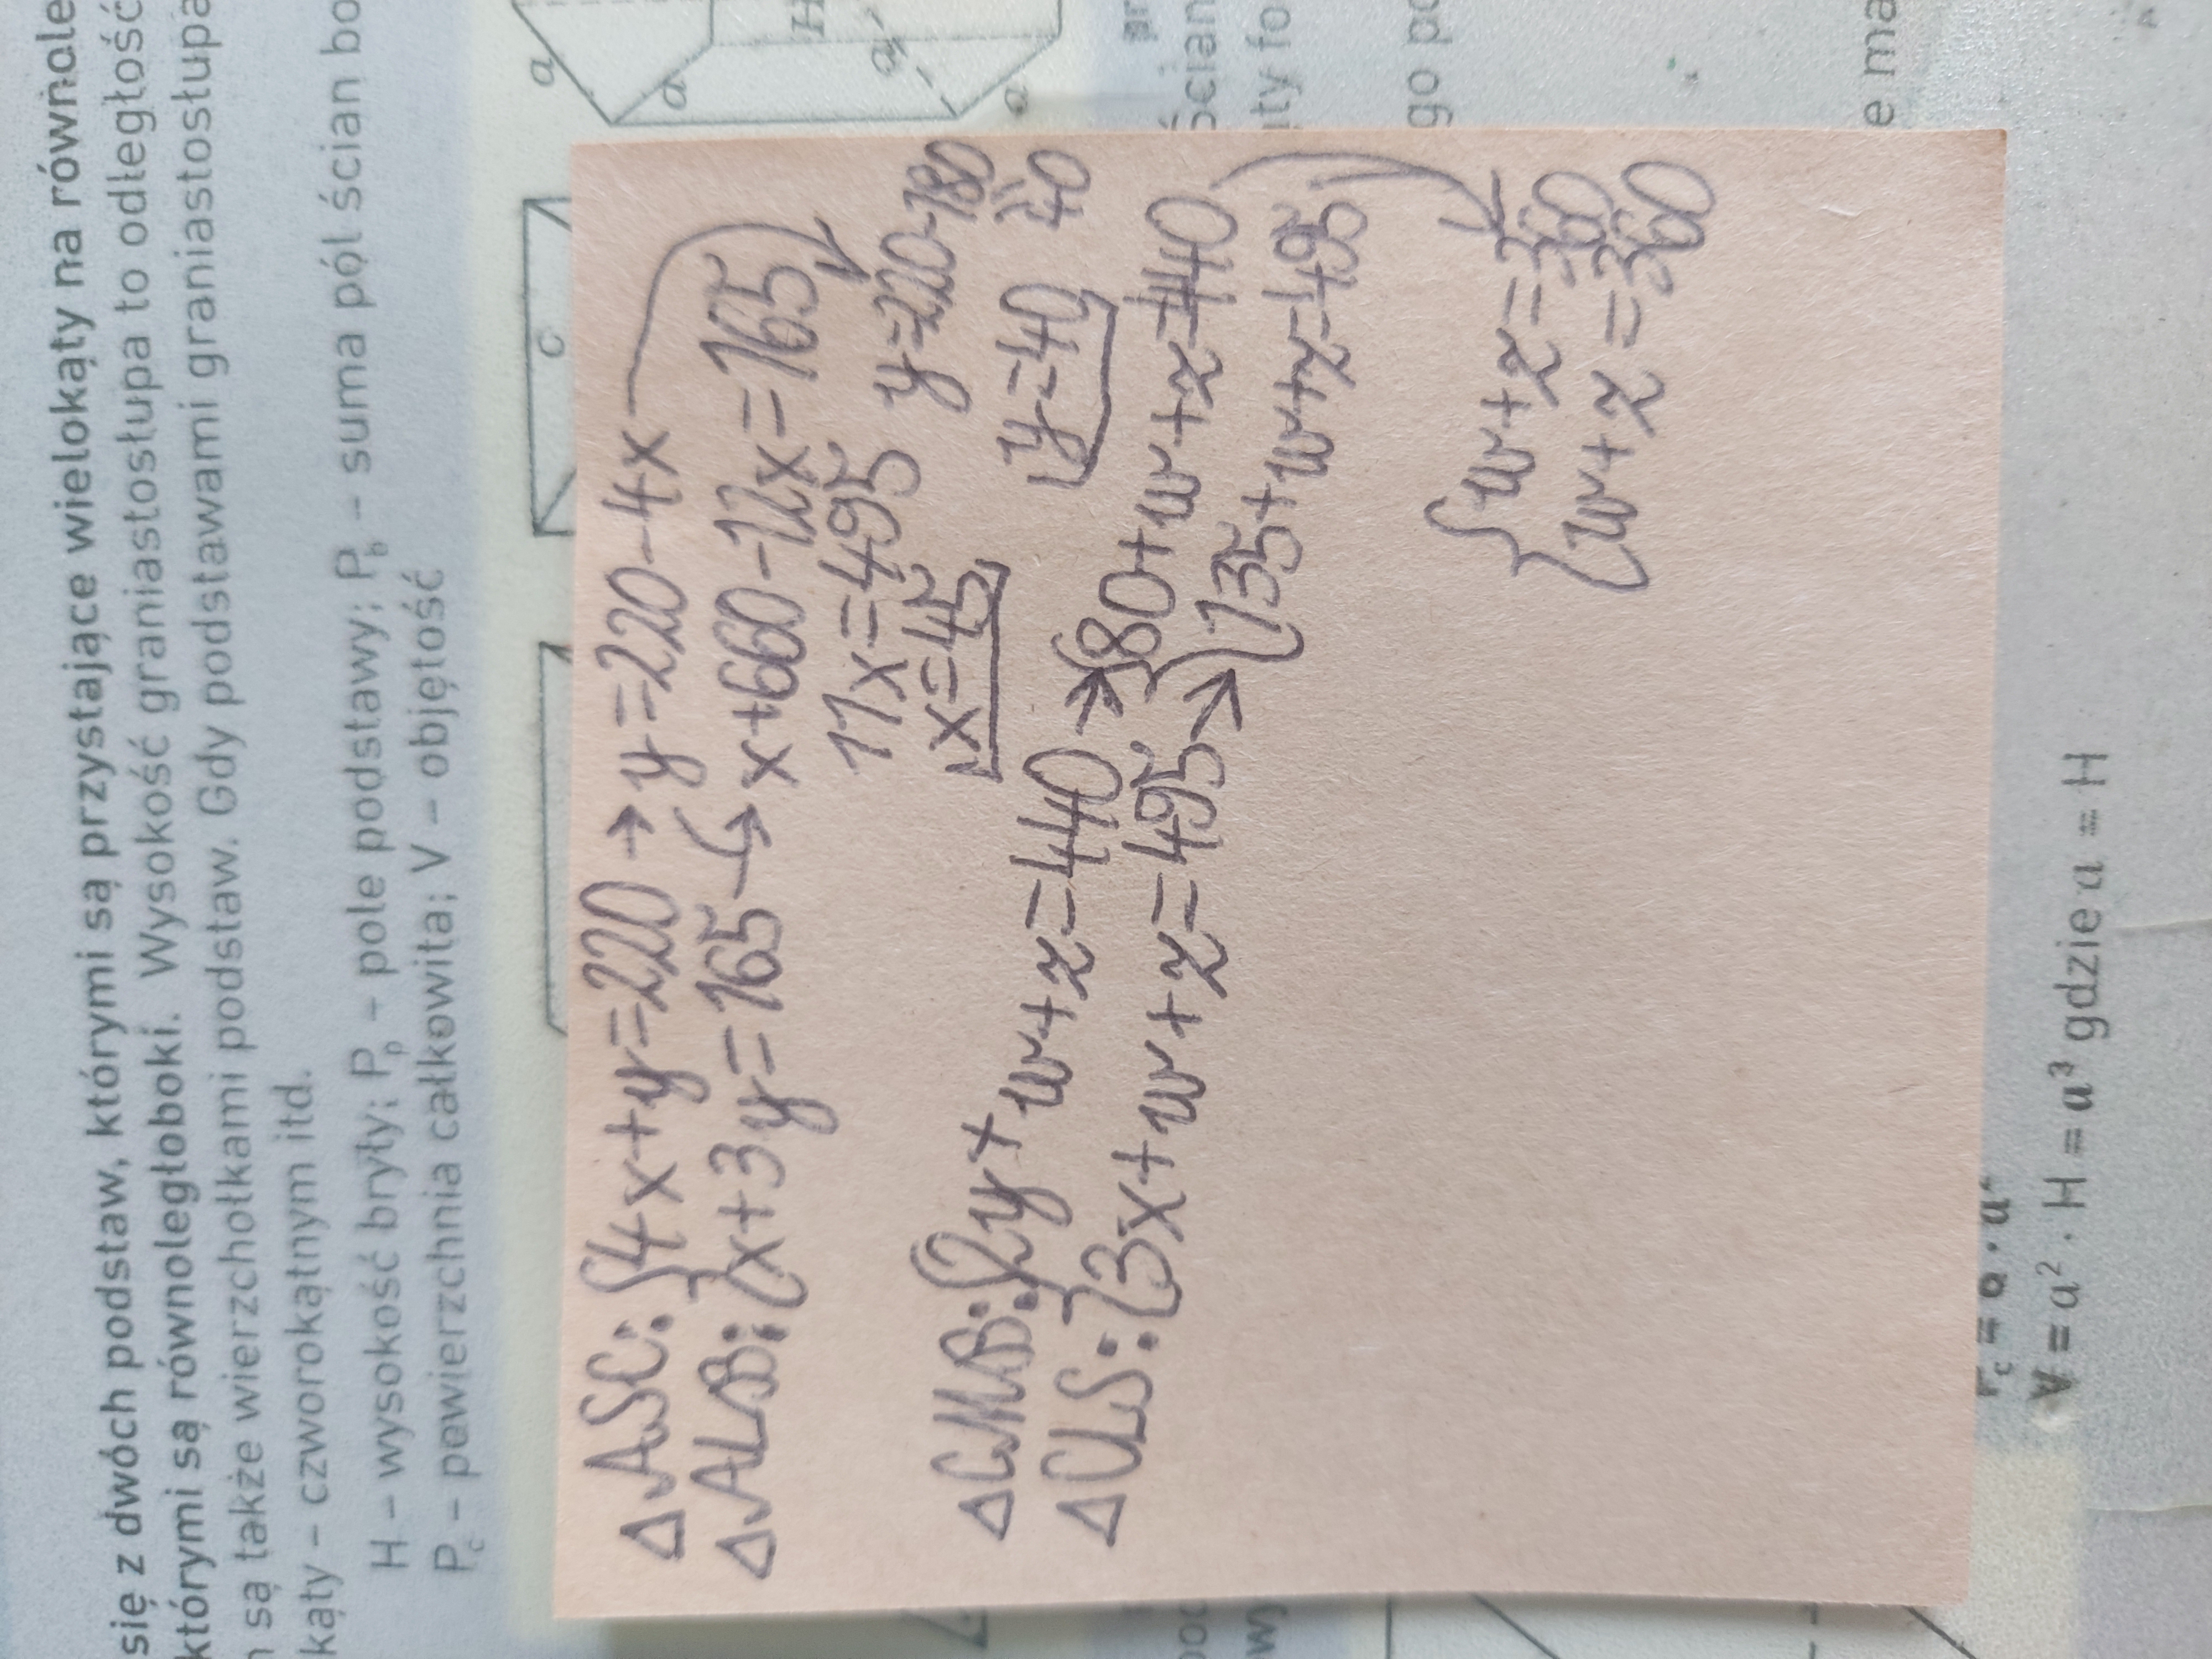 się z dwóch podstaw, którymi są przystające wielokąty na równole
którymi są równoległoboki. Wysokość graniastosłupa to odległość
są także wierzchołkami podstaw. Gdy podstawami graniastosłupa
kąty – czworokątnym itd.
H – wysokość bryły; Pp – pole podstawy; Pb – suma pól ścian bo
Pc – powierzchnia całkowita; V – objętość
c
a
a
H
a
a
ΔASC: {4x+y=220 → y=220-4x
ΔALB: {x+3y=165 → x+660-12x=165
11x=495
y=220-180
x=45
y=40
40
ΔCMB: {2y+w+z=440 → {80+w+z=440
ΔCLS: {3x+w+z=495 → {135+w+z=495
{w+z=360
{w+z=360
Ścian
ity fo
go po
e ma
V = a² · H = a³ gdzie a = H